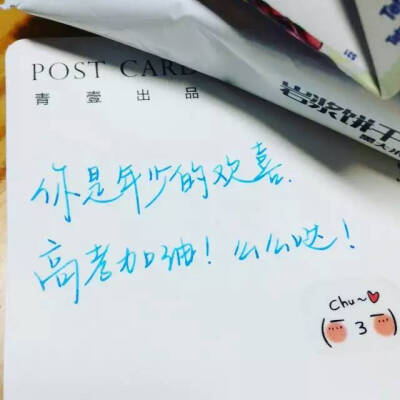 POST CARD
青壹出品
岩浆饼干
你是年少的欢喜.
高考加油！么么哒！
Chu~